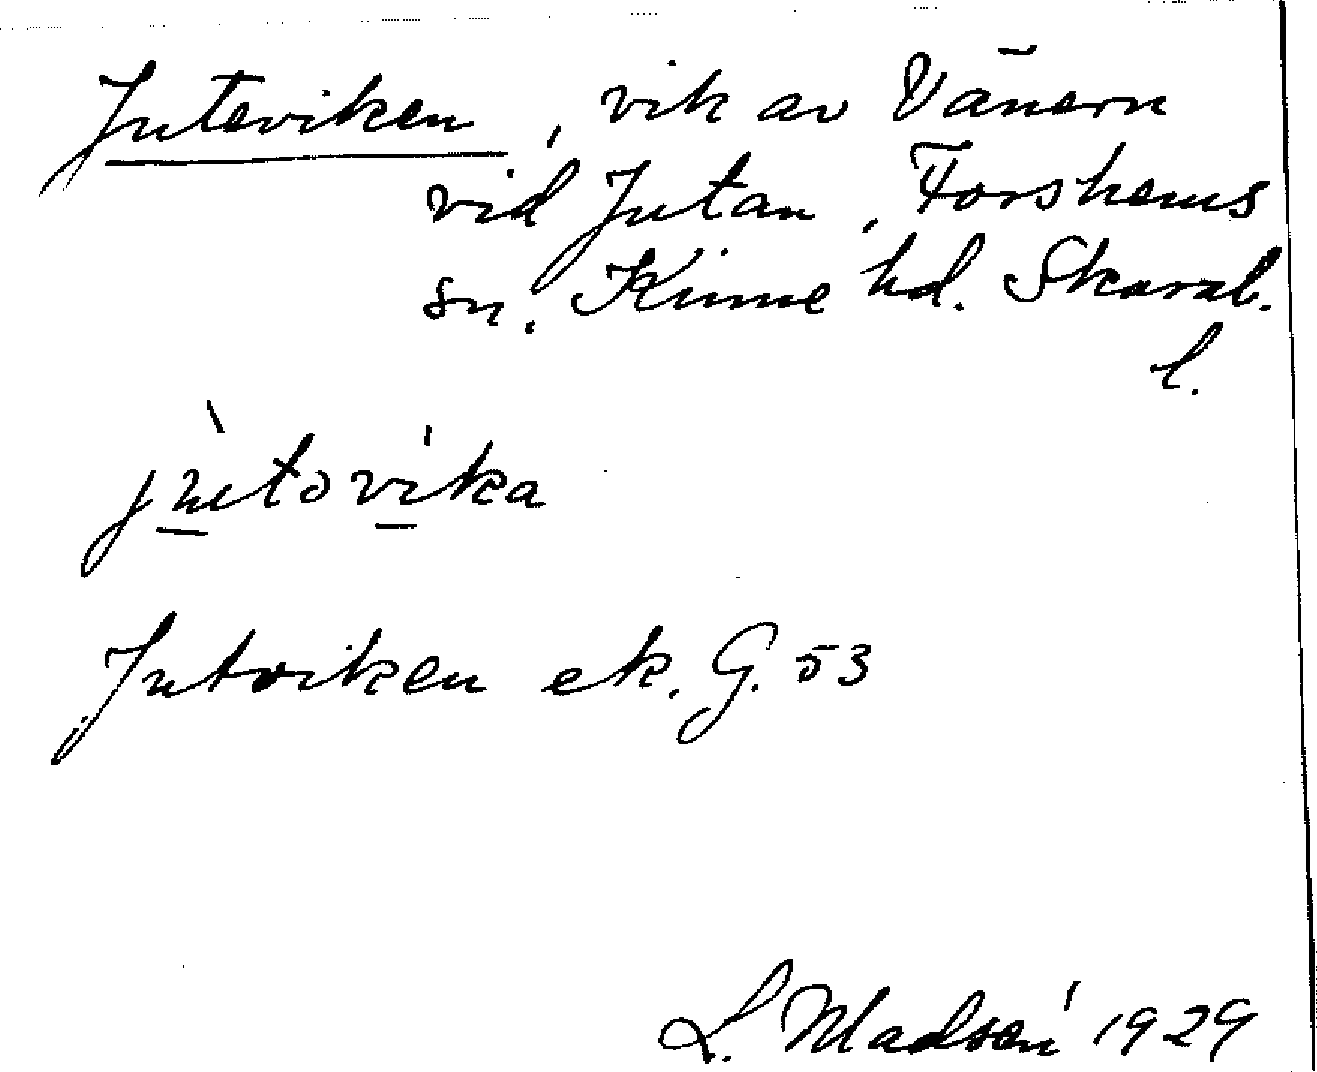 Juteviken, vik av Vänern
vid Jutan, Forshems
sn. Kinne hd. Skarab.
l.
jùtəvíka
Jutviken ek. G. 53
L. Madsén 1929